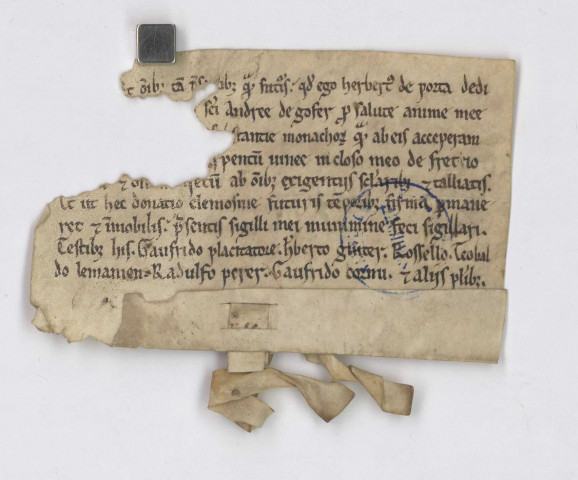 oib; tā p̄s ib; q̄ᷓ fut᷒is. qd̓ ego herbert᷒ de porta dedi
sc̄i Andree de gofer p̱ salute anime mee
stantie monachoꝝ q̄ᷓ ab eis acceperam
pentū vinee in closo meo de fretreio
⁊ ab oīb; exigentijs ⁊ talliatis.
Et ut hec donatio elemosine futuris tēporib; firma p̱mane
ret ⁊ īmobilis. p̄sentis sigilli mei munimine feci sigillari.
Testib; his. Gaufrido placitatore. hb̓erto Rossello. Teobal
do lemamen= Radulfo perer. Gaufrido cornu. ⁊ alijs plib;.